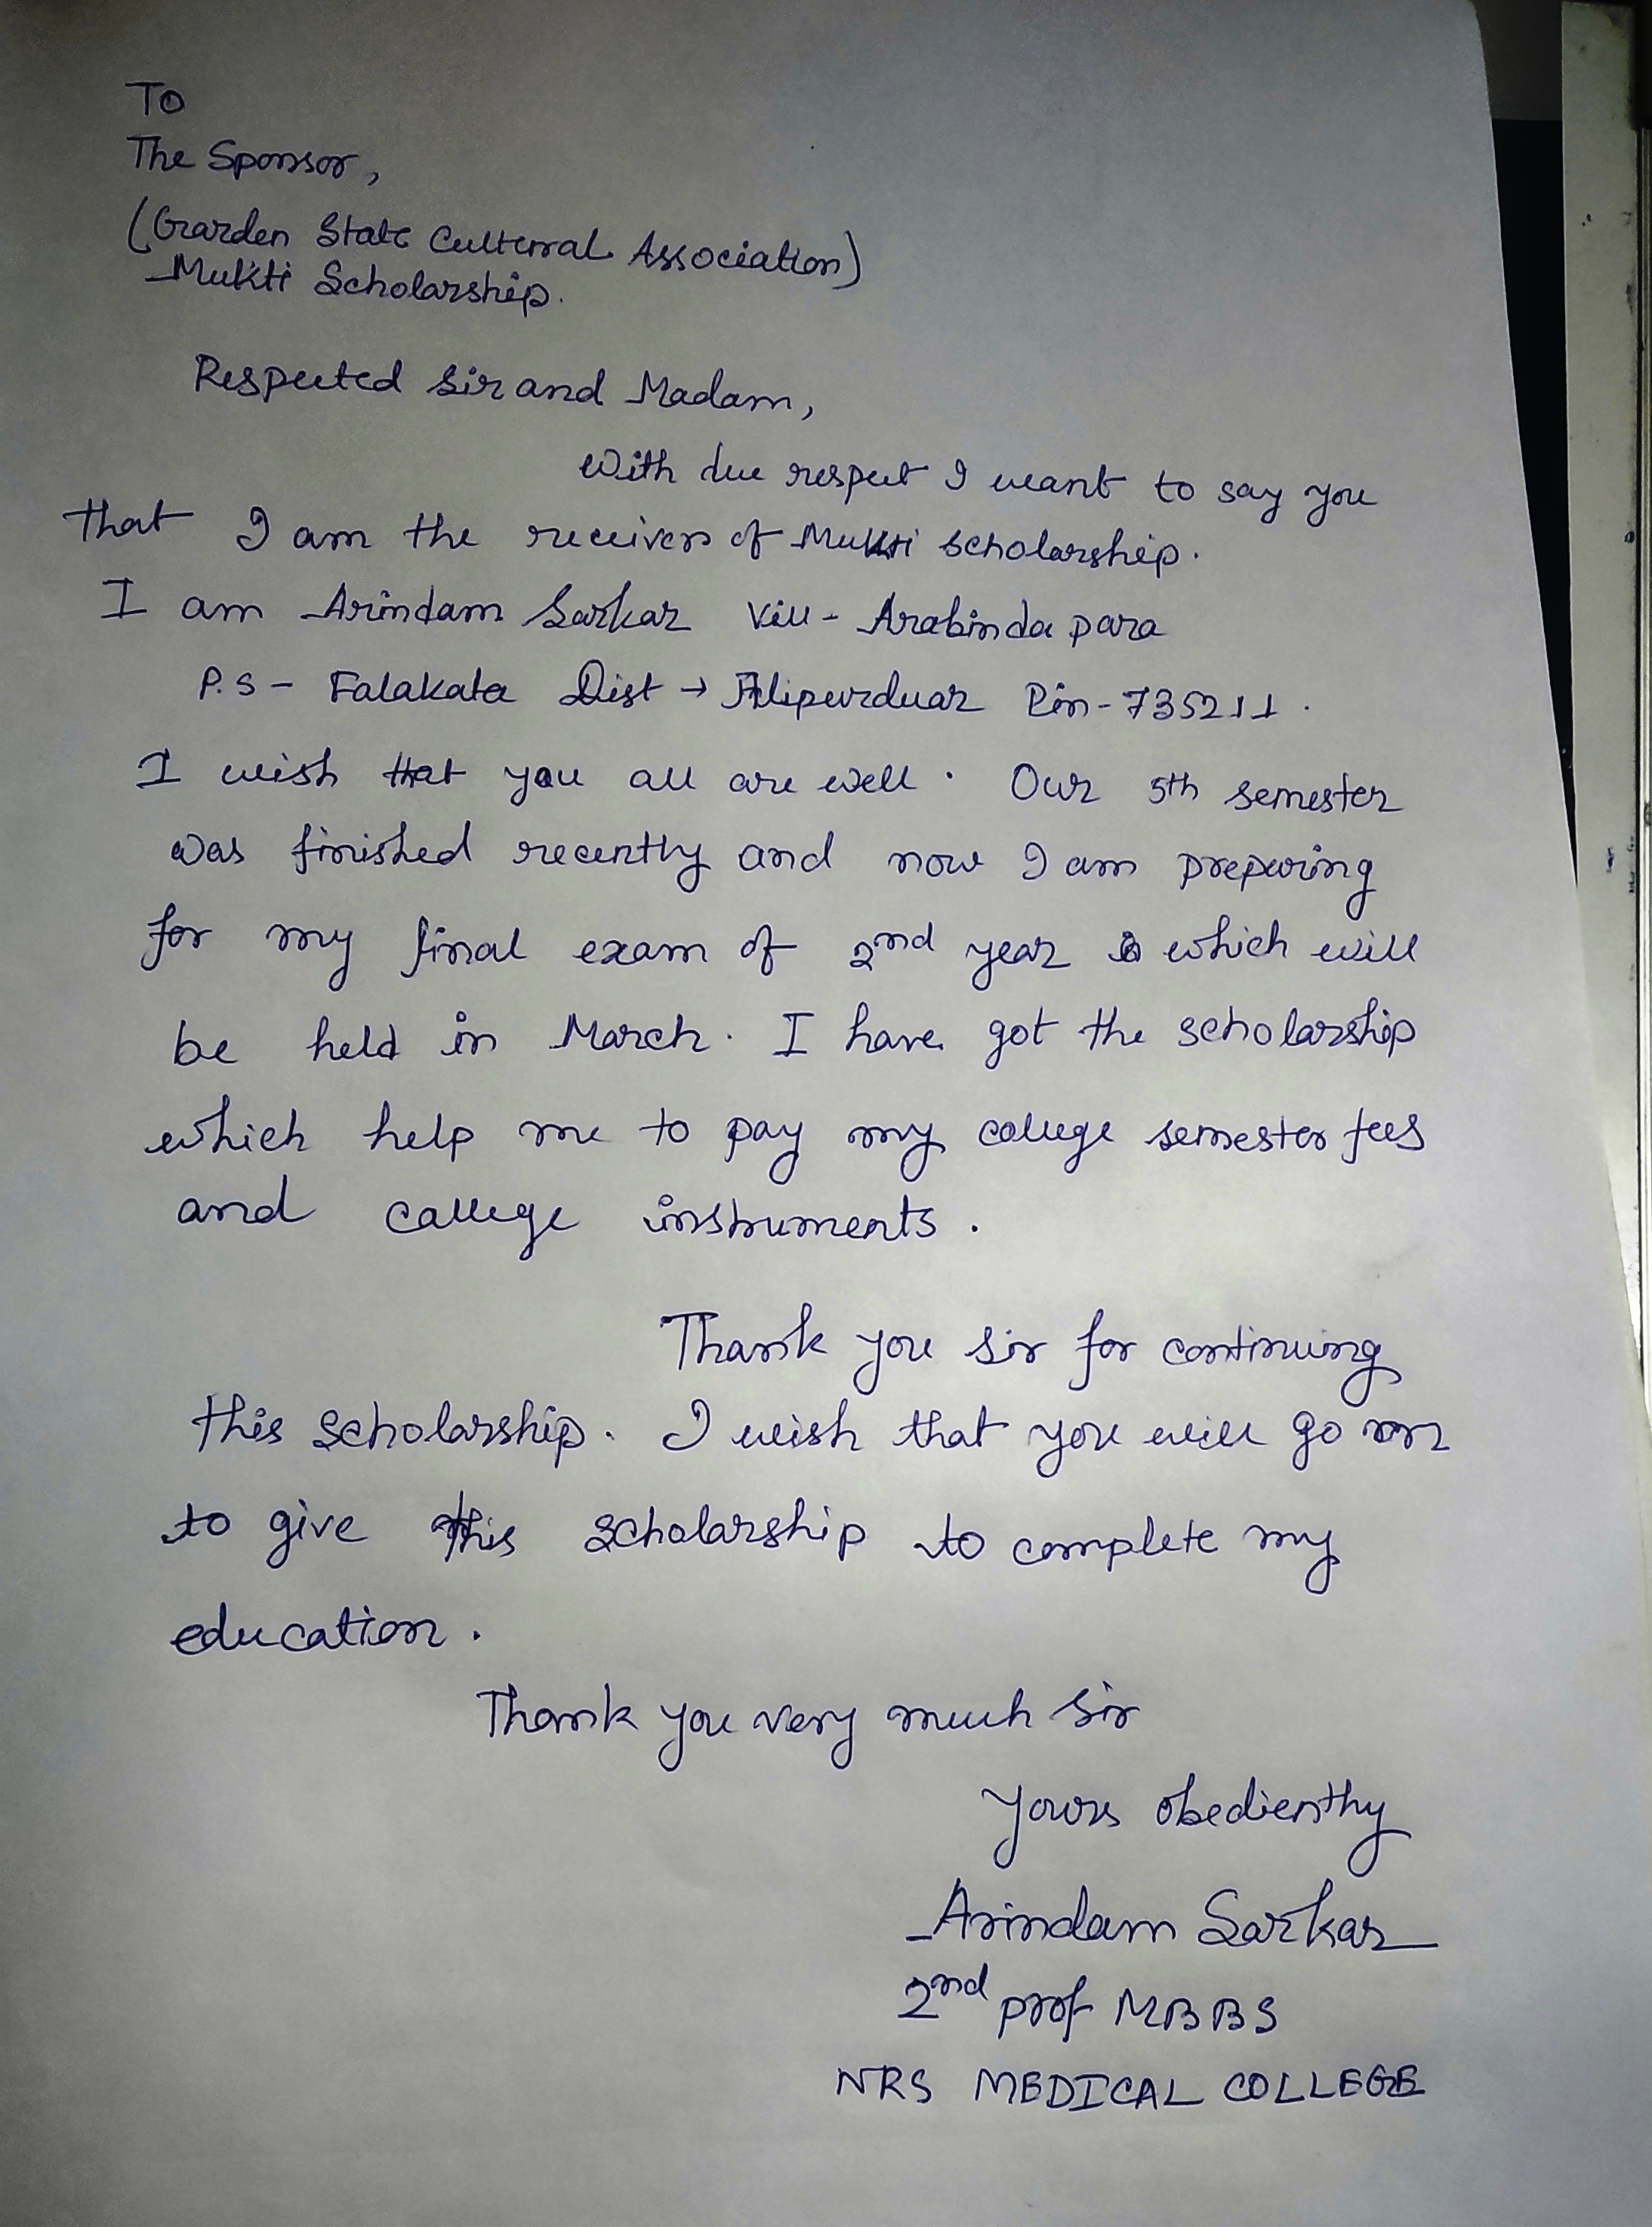 To
The Sponsor,
(Garden State Cultural Association)
Mukti Scholarship.
Respected Sir and Madam,
With due respect I want to say you
that I am the receiver of Mukti scholarship.
I am Arindam Sarkar Vill - Arabinda para
P.S - Falakata Dist → Alipurduar Pin - 735211.
I wish that you all are well. Our 5th semester
was finished recently and now I am preparing
for my final exam of 2nd year which will
be held in March. I have got the scholarship
which help me to pay my college semester fees
and college instruments.
Thank you sir for continuing
this scholarship. I wish that you will go on
to give this scholarship to complete my
education.
Thank you very much sir
Yours obediently
Arindam Sarkar
2nd prof MBBS
NRS MEDICAL COLLEGE